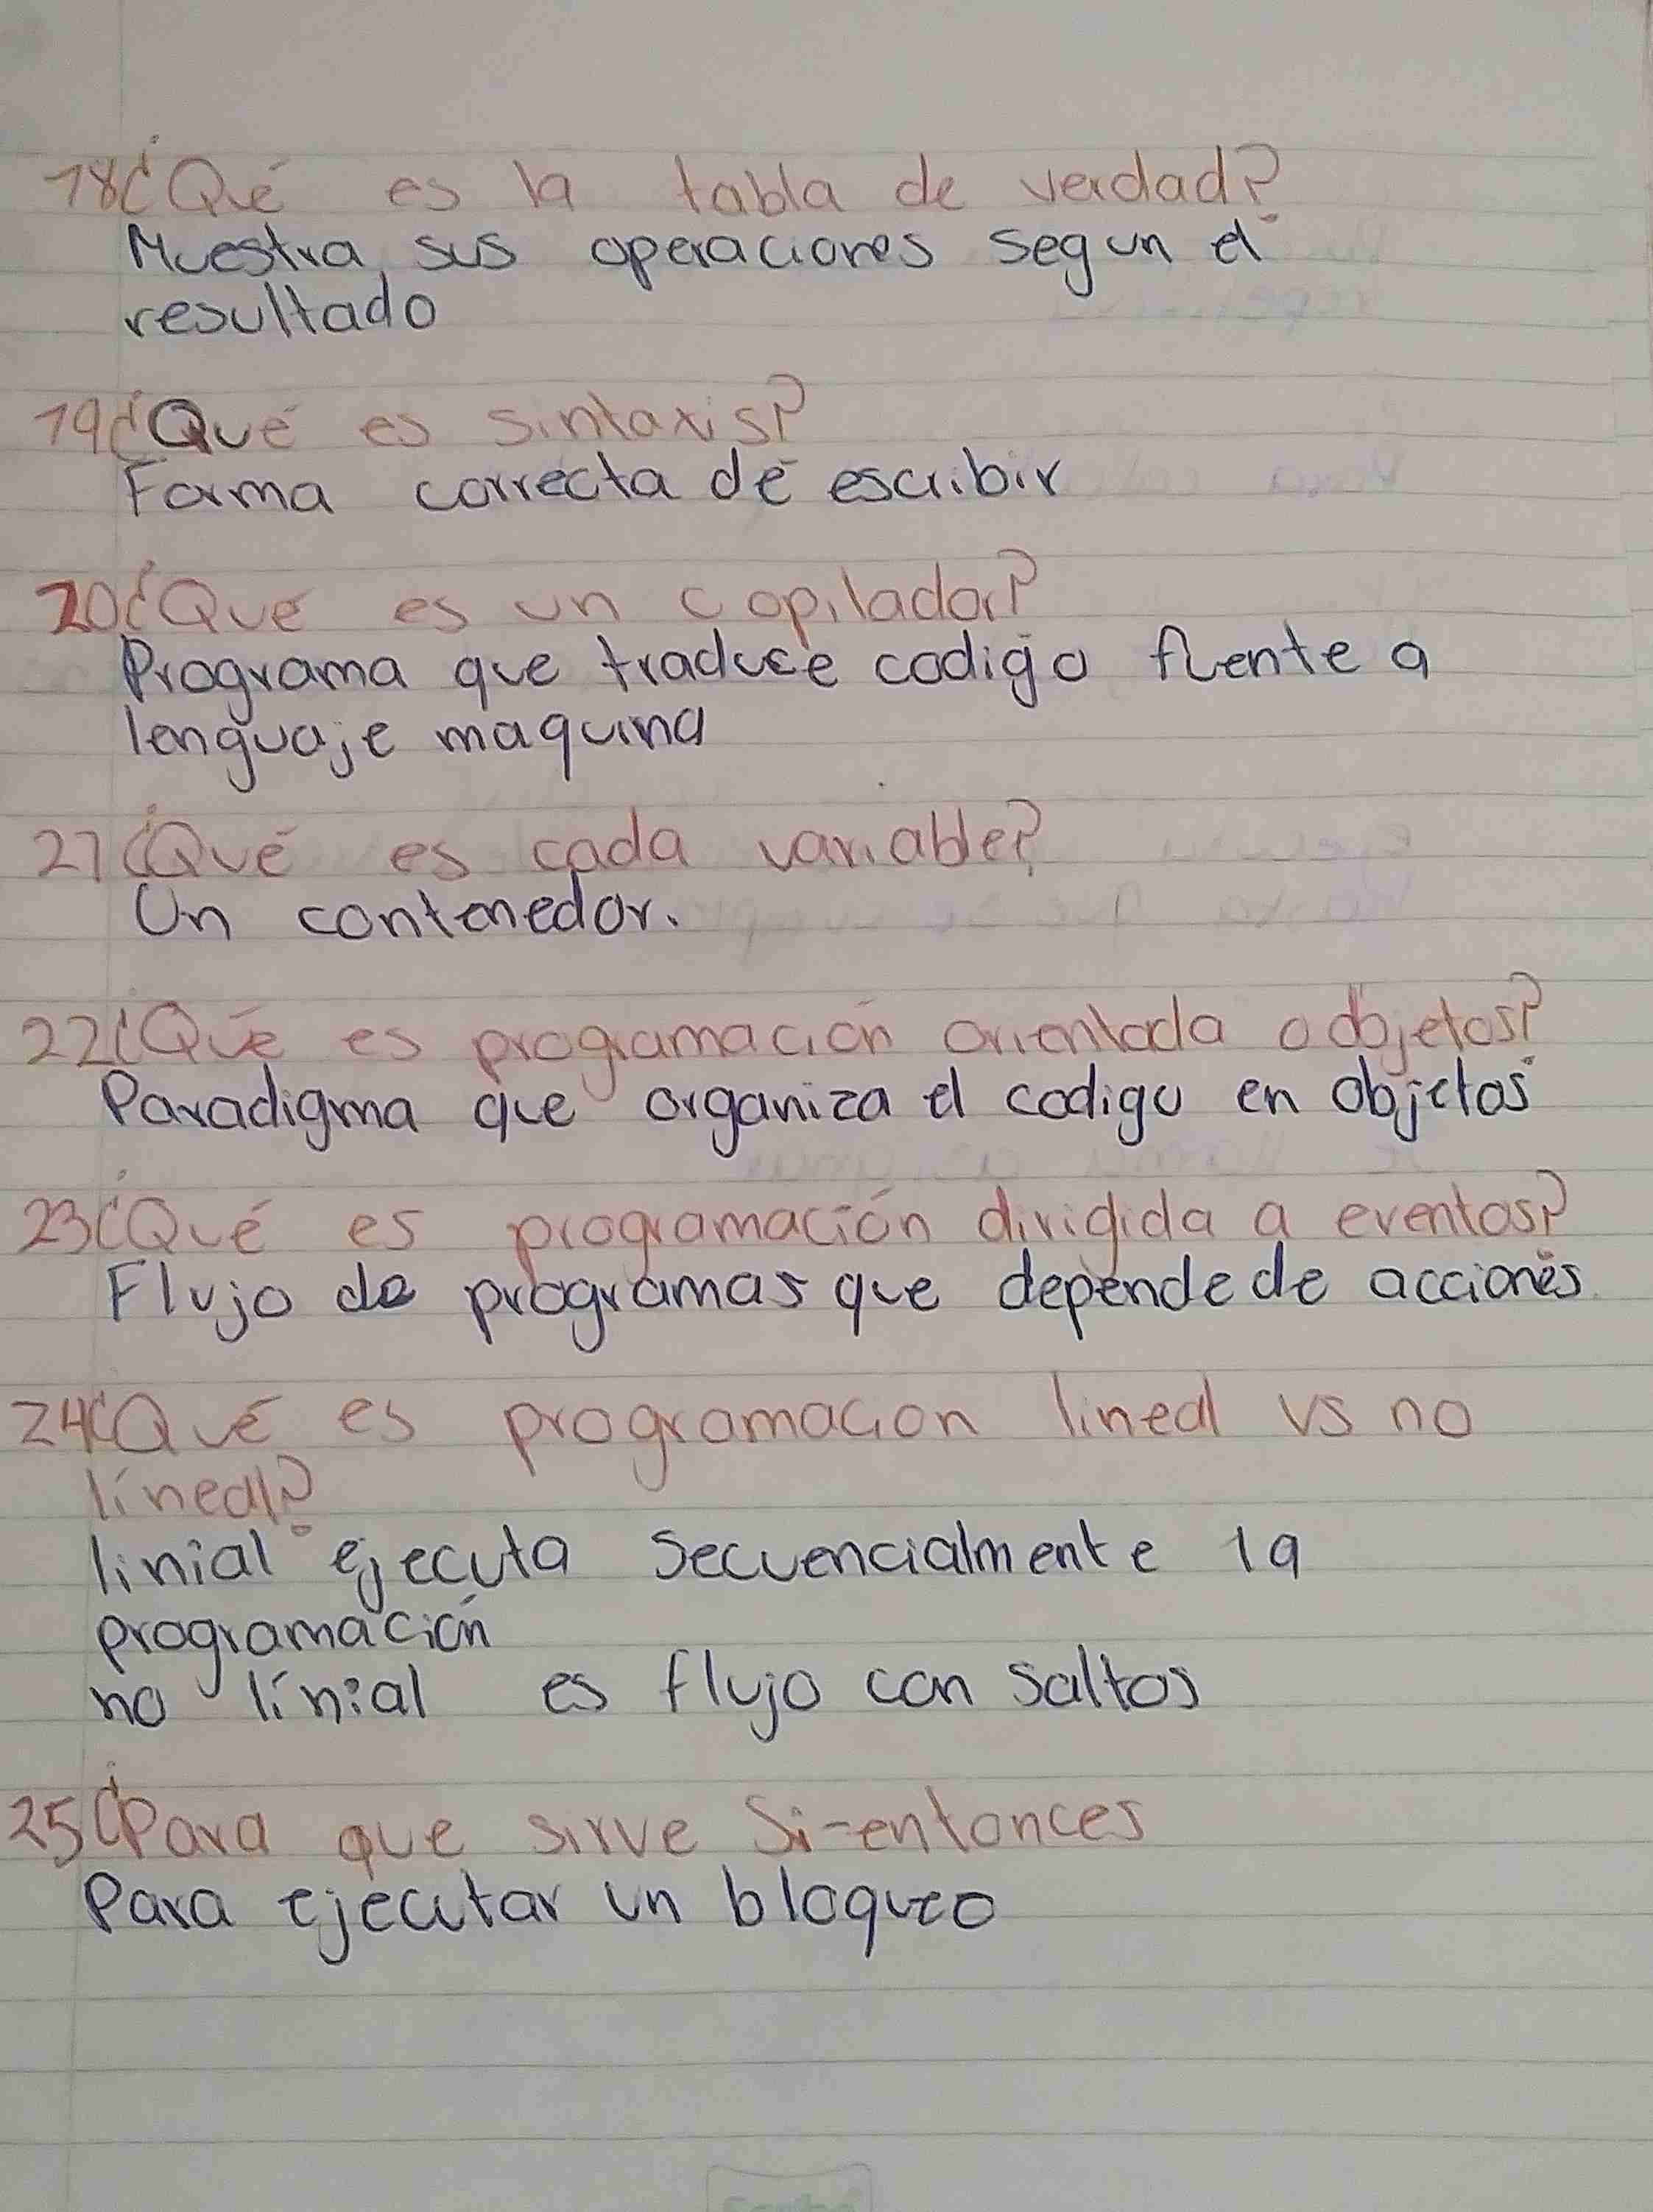 18¿Qué es la tabla de verdad?
Muestra sus operaciones segun el
resultado
19¿Qué es sintaxis?
Forma correcta de escribir
20¿Qué es un copilador?
Programa que traduce codigo fuente a
lenguaje maquina
21¿Qué es cada variable?
Un contenedor.
22¿Qué es programación orientada a objetos?
Paradigma que organiza el codigo en objetos
23¿Qué es programación dirigida a eventos?
Flujo de programas que depende de acciones
24¿Qué es programacion lineal vs no
líneal?
linial ejecuta secuencialmente la
programación
no línial es flujo con saltos
25¿Para que sirve Si-entonces
Para ejecutar un bloqueo
Scribe